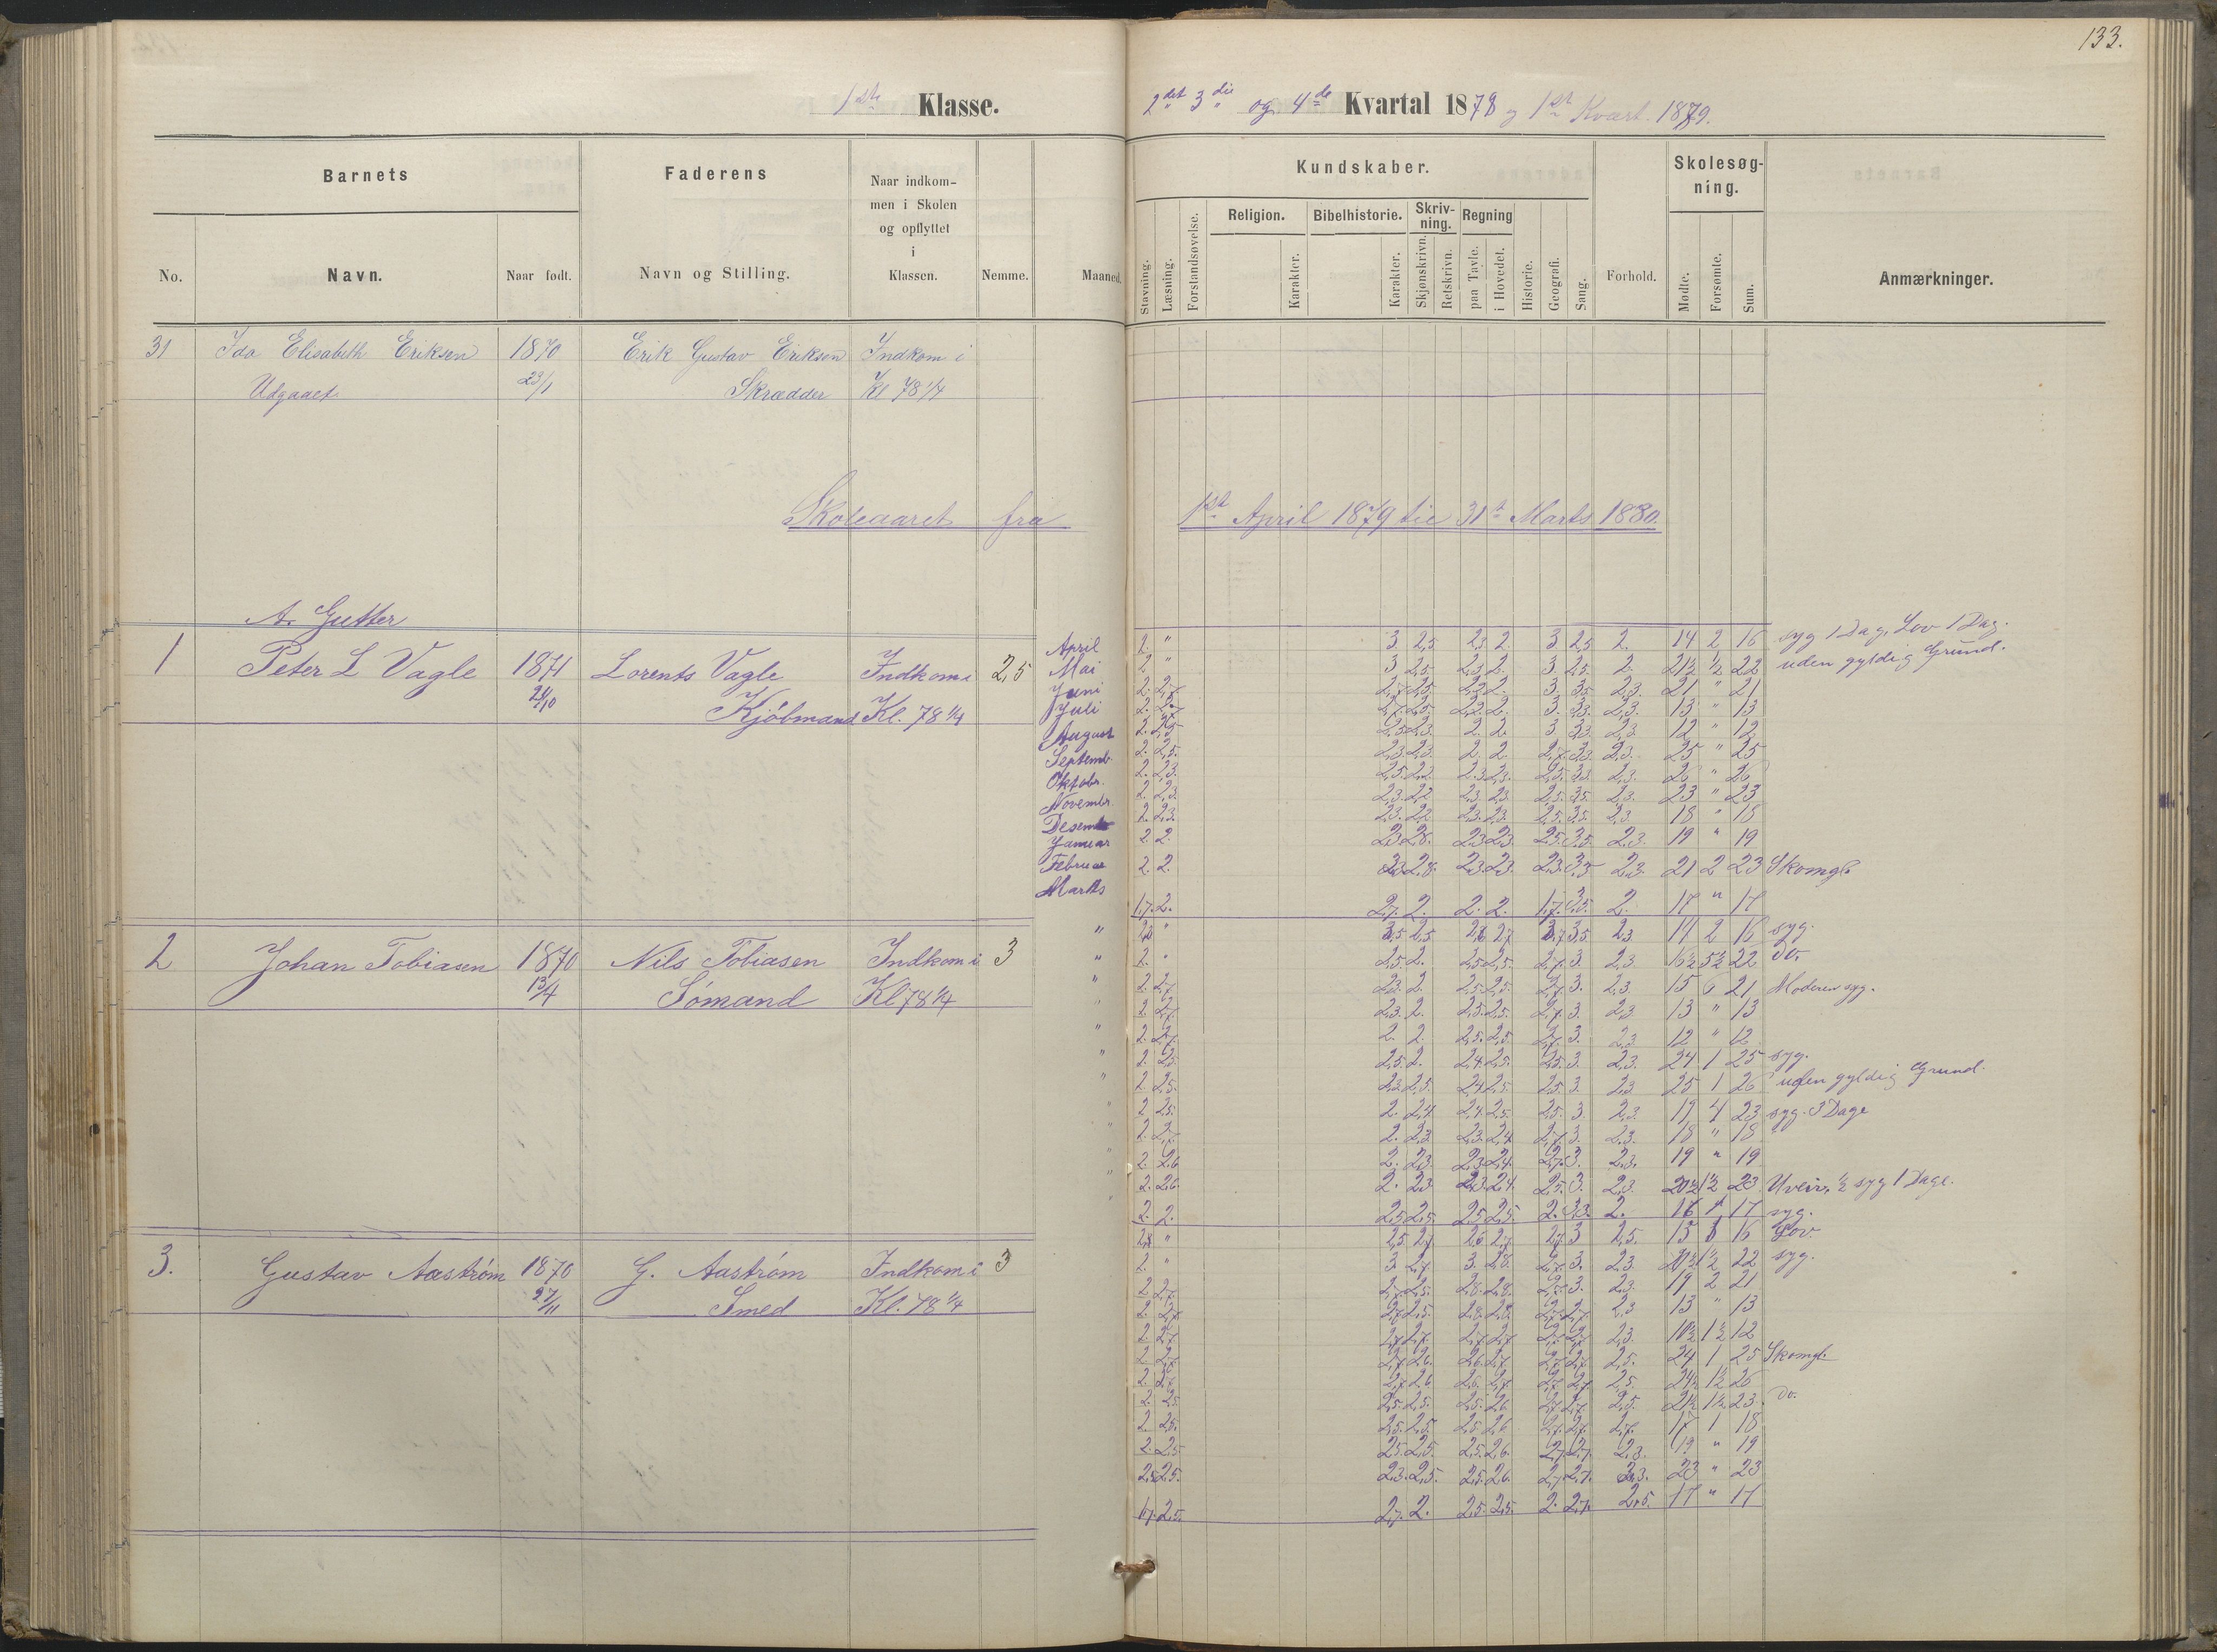 133.
1ste Klasse.
2det 3die og 4de Kvartal 1878 og 1ste Kvart. 1879.
Barnets
Faderens
Naar indkom-
men i Skolen
og opflyttet
i
Klassen.
Nemme.
Maaned.
No.
Navn.
Naar født.
Navn og Stilling.
Kundskaber.
Skolesøg-
ning.
Religion.
Bibelhistorie.
Skriv-
ning.
Regning
Stavning.
Læsning.
Forstandsøvelse.
Karakter.
Karakter.
Skjønskrivn.
Retskrivn.
paa Tavle.
i Hovedet.
Historie.
Geografi.
Sang.
Forhold.
Mødte.
Forsømte.
Sum.
Anmærkninger.
31 Ida Elisabeth Eriksen 1870 Erik Gustav Eriksen Indkom i
Udgaaet 23/1 Skrædder Kl 78 1/4
Skoleaaret fra 1ste April 1879 til 31te Marts 1880.
A. Gutter
1 Peter L Vagle 1871 Lorents Vagle Indkom i 2,5
Kjöbmand Kl. 78 1/4
April 2. " 3 2,5 2,3 2. 3 2,5 2. 14 2 16 syg 1 Dag, Lov 1 Dag.
Mai 2 " 3 2,5 2,3 2. 3 2,5 2. 21½ ½ 22 uden gyldig Grund.
Juni 2. 2,7 2,7 2,5 2,2 2. 3. 3,3 2,3. 21 " 21
Juli 2. 2,7 2,7 2,5 2,2 2. 3. 3,3 2,3. 13 " 13
August 2. 2,5 2,5 2,3 2. 2. 3 3,3 2,3 12 " 12
Septembr. 2. 2,5. 2,3 2,3 2. 2. 2,7 3,3 2,3. 25 " 25
Oktobr. 2. 2,3. 2,5 2,2 2,3 2,3. 2,5. 3,3 2,3. 26 " 26
Novembr. 2. 2,3 2,3 2,2 2,3 2,3 2,5. 3,5. 2,3. 23 " 23
Desemb 2. 2,3. 2,3. 2,2 2,3. 2,3. 2,5. 3,5. 2,3 18 " 18
Januar 2. 2. 2,3 2,8. 2,3 2,3. 2,5. 3,5. 2,3. 19 " 19
Februar 2. 2. 2,3 2,8. 2,3. 2,3. 2,3. 3,5 2,3. 21 2 23 Skomgl.
Marts 1,7. 2. 2,7. 2. 2. 2. 1,7. 3,5. 2. 17 " 17
2 Johan Tobiasen 1870 Nils Tobiasen Indkom i 3
13/4 Sömand Kl 78 1/4
" 3,5 2,5 2,7 3,5 2,3 14 2 16 syg.
" 2. " 2,5 2. 2,5 2,5. 2,7. 3 2,3 16½ 5½ 22 do.
" 2. 2,7 2,3. 2 2,5 2,5. 2,7 3. 2,3. 15 6 21 Moderen syg.
" 2. 2,7. 2,3. 2. 2,5. 2,5. 2,7. 3. 2,3 13 " 13
" 2. 2,7. 2. 2. 2,5. 2,5. 2,7. 3. 2,3 12 " 12
" 2. 2,5 2,5 2. 2,4. 2,5. 2,5. 3 2,3. 24 1 25 syg.
" 2. 2,5. 2,3. 2,5. 2,4 2,5. 2,5. 3. 2,3 25 1 26 uden gyldig Grund.
" 2 2,5. 2. 2,4 2,4. 2,5. 2,5. 3. 2,3 19 4 23 syg. 3 Dage
" 2. 2,7. 2. 2,3 2,3. 2,4 2,7. 3. 2,3. 18 " 18
" 2. 2,6 2. 2,3 2,3 2,4. 2,7. 3. 2,3. 19 " 19
" 2. 2,6. 2. 2,3 2,3. 2,4. 2,5. 3. 2,3. 20½ 1½ 23 Uveir, ½ syg 1 Dage.
" 2. 2. 2,5 2,5 2,5 2,5. 2. 3,3. 2. 16 1 17 syg.
3. Gustav Aaström 1870 G. Aaström Indkom i 3
27/11 Smed Kl. 78 1/4
" 2,5 2,7 2,6 2,7 2,7 3 2,5. 15 16 Lov
2 " 3 2,7 3. 2,8 2,7 3. 2,3 20½ 1½ 22 syg.
2 2,7 2,7 2,5. 2,8. 2,8. 2,7. 3. 2,3. 19 2 21
2. 2,7 2,7 2,5. 2,8. 2,8 2,7 2,7 2,3 13 " 13
2. 2,7 2,7 2,7. 2,7 2,7 2,7 2,7 2,3. 10½ 1½ 12
2 2,7 2,7 2,6. 2,6. 2,7 2,7 2,7. 2,5. 24 1 25 Skomgl.
2. 2,7 2,7 2,6 2,6. 2,7. 2,7 2,7 2,5. 24½ 1½ 26
2. 2,5 2,5. 2,5. 2,5. 2,6 2,7 2,7. 2,5. 21½ 1½ 23 do.
2. 2,5. 2,5. 2,5. 2,5 2,6 2,7. 2,7. 2,7. 17 1 18
2. 2,5 2,5. 2,5 2,5. 2,6. 2,7 2,7. 2,3. 19 " 19
2,5. 2,3. 2,5. 2,5. 2,6. 2,7 2,7. 2,3. 23 " 23
1,7. 2,5. 2,7. 2. 2,5. 2,5. 2. 2,7. 2,5. 17 " 17